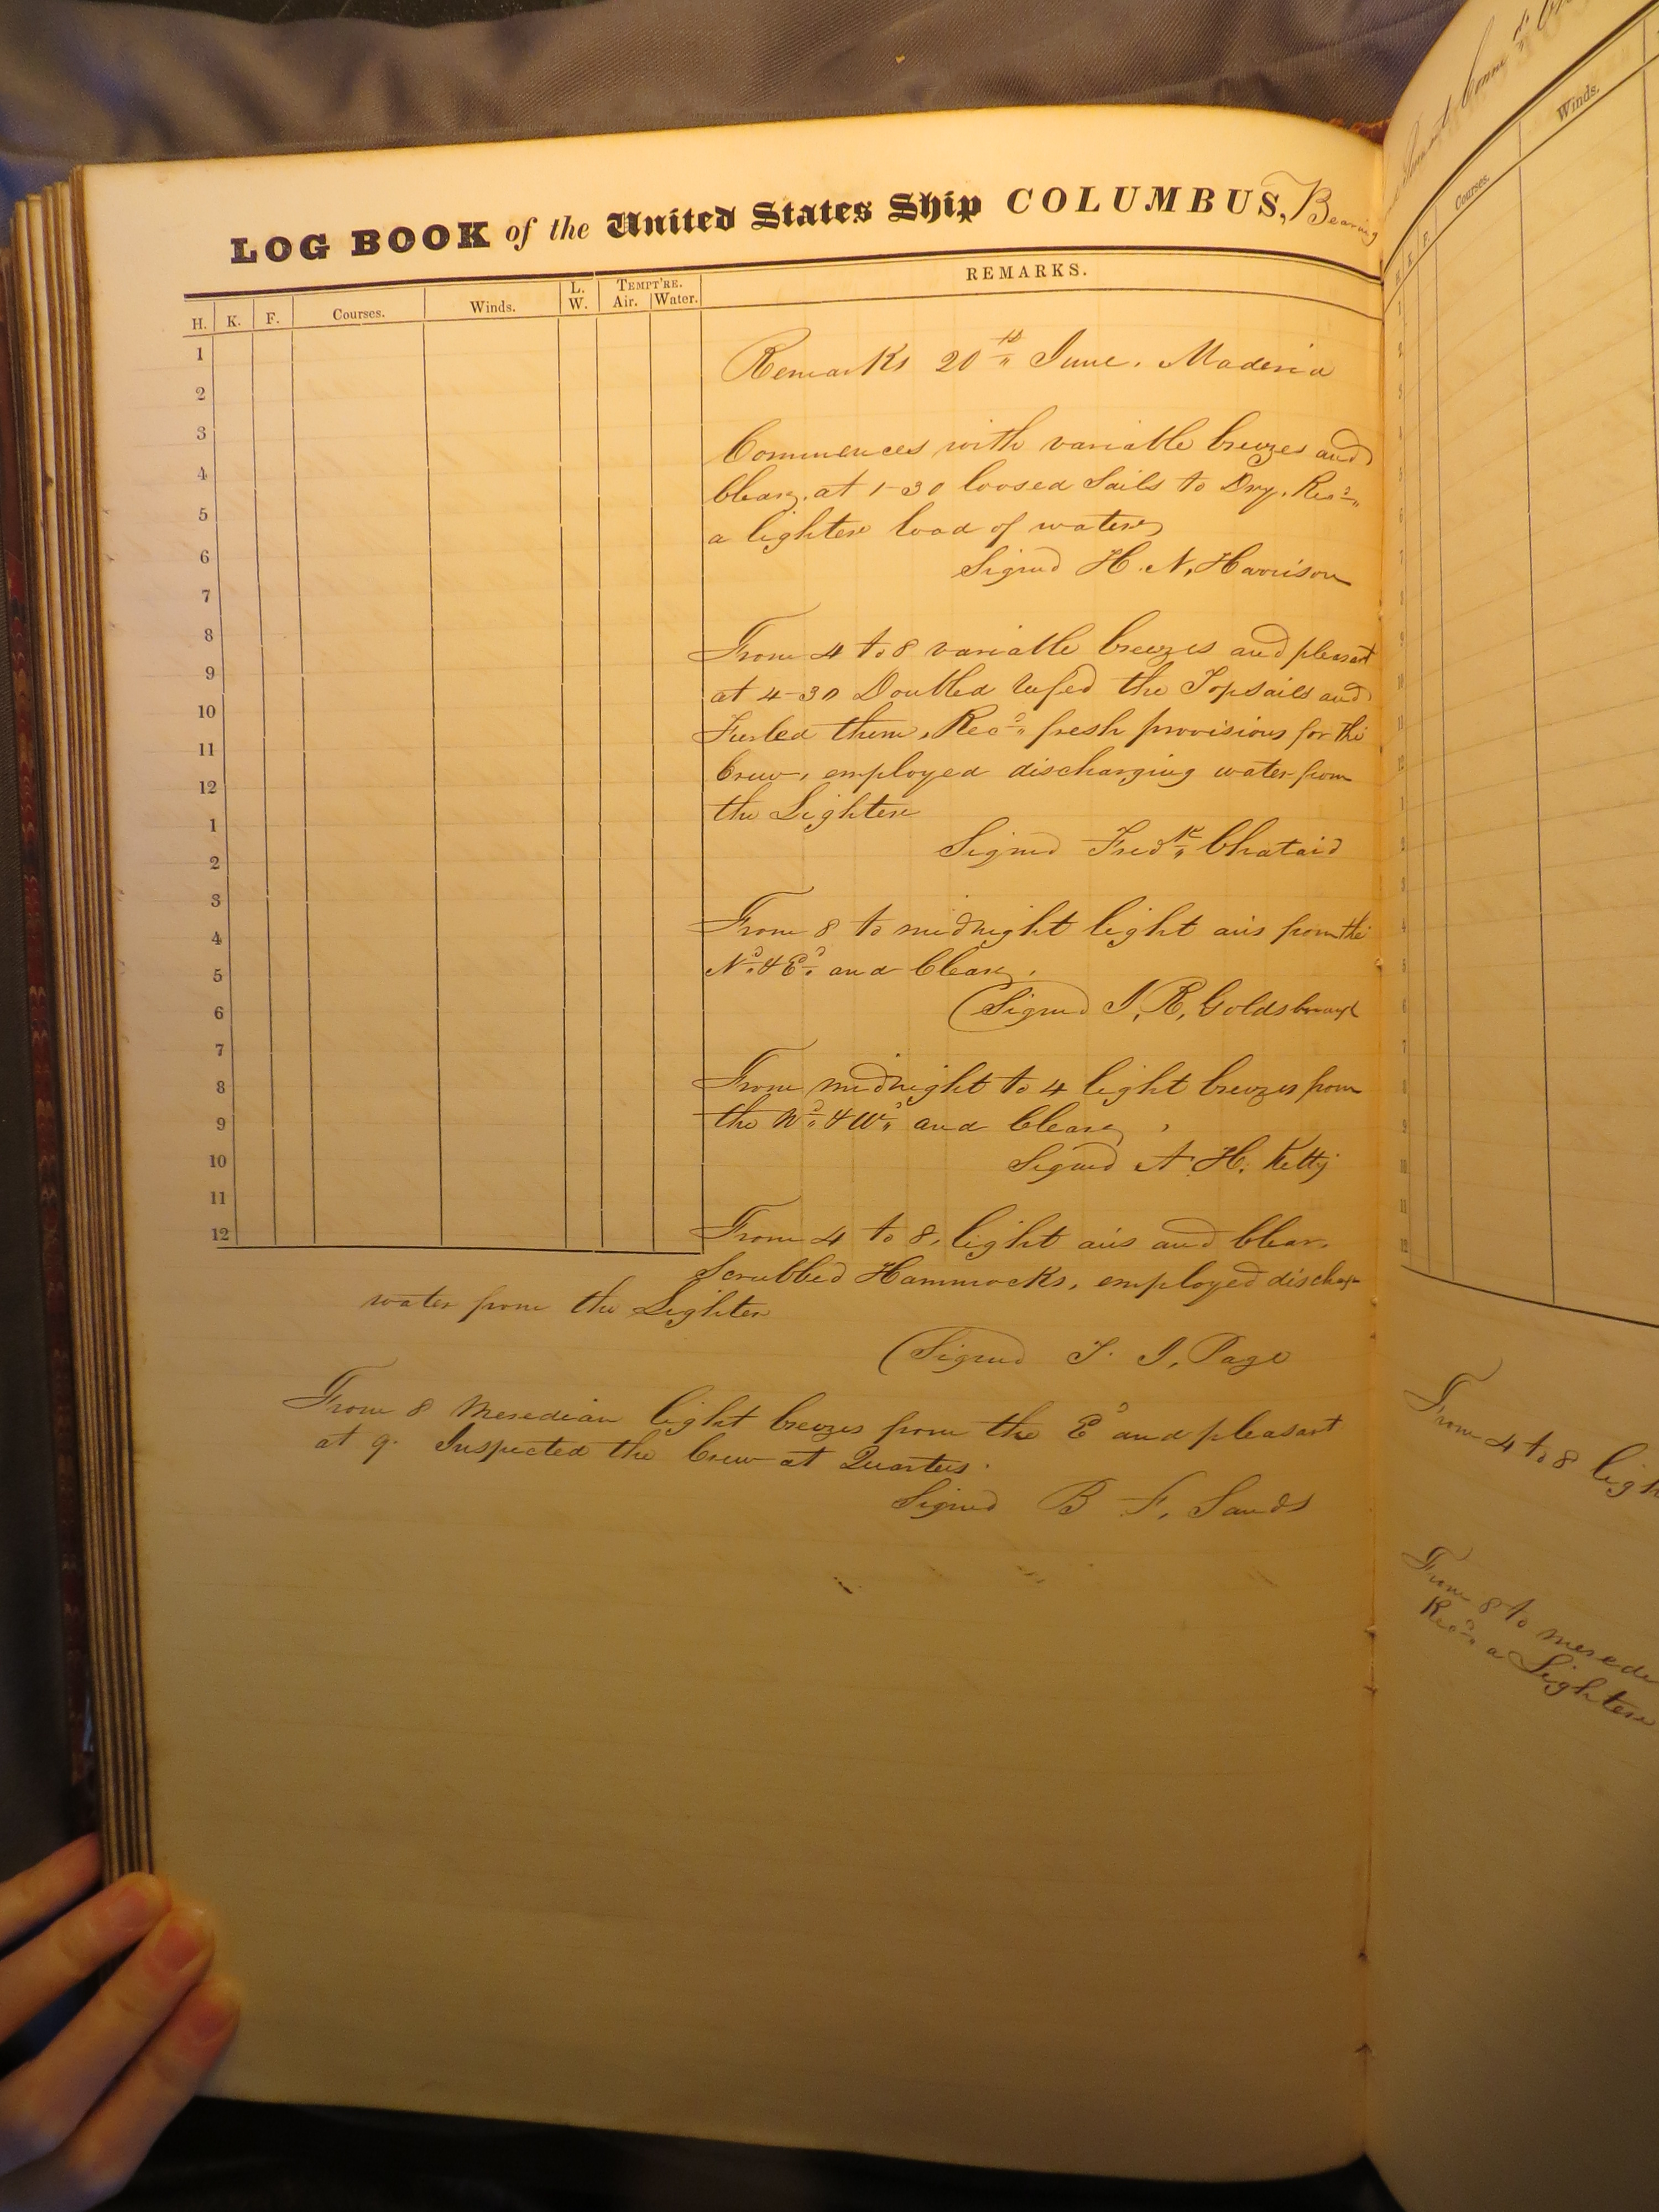 LOG BOOK of the United States Ship COLUMBUS, Bearing
H. K. F. Courses. Winds. L. W. TEMPT'RE. Air. Water. REMARKS.
1
2
3
4
5
6
7
8
9
10
11
12
1
2
3
4
5
6
7
8
9
10
11
12
Remarks 20th June. Maderia
Commences with variable breezes and
Clear. at 1-30 loosed Sails to Dry. Recd
a lighter load of water
Signed H. N. Harrison
From 4 to 8 variable breezes and pleasant
at 4-30 Doubled Refed the Topsails and
Furled them, Recd fresh provisions for the
Crew, employed discharging water from
the Lighter
Signed Fredk Chatard
From 8 to midnight light airs from the
Nd & Ed and Clear.
(Signed J. R. Goldsborough
From midnight to 4 light breezes from
the Nd & Wd and Clear,
Signed A. H. Kelty
From 4 to 8, light airs and Clear.
Scrubbed Hammocks, employed dischag
water from the Lighter
(Signed T. J. Page
From 8 Meredian light breezes from the Ed and pleasant
at 9. Inspected the Crew at Quarters.
Signed B. F. Sands
Winds.
Courses.
F.
From 4 to 8 ligh
From 8 to meredi
Recd a Lighter